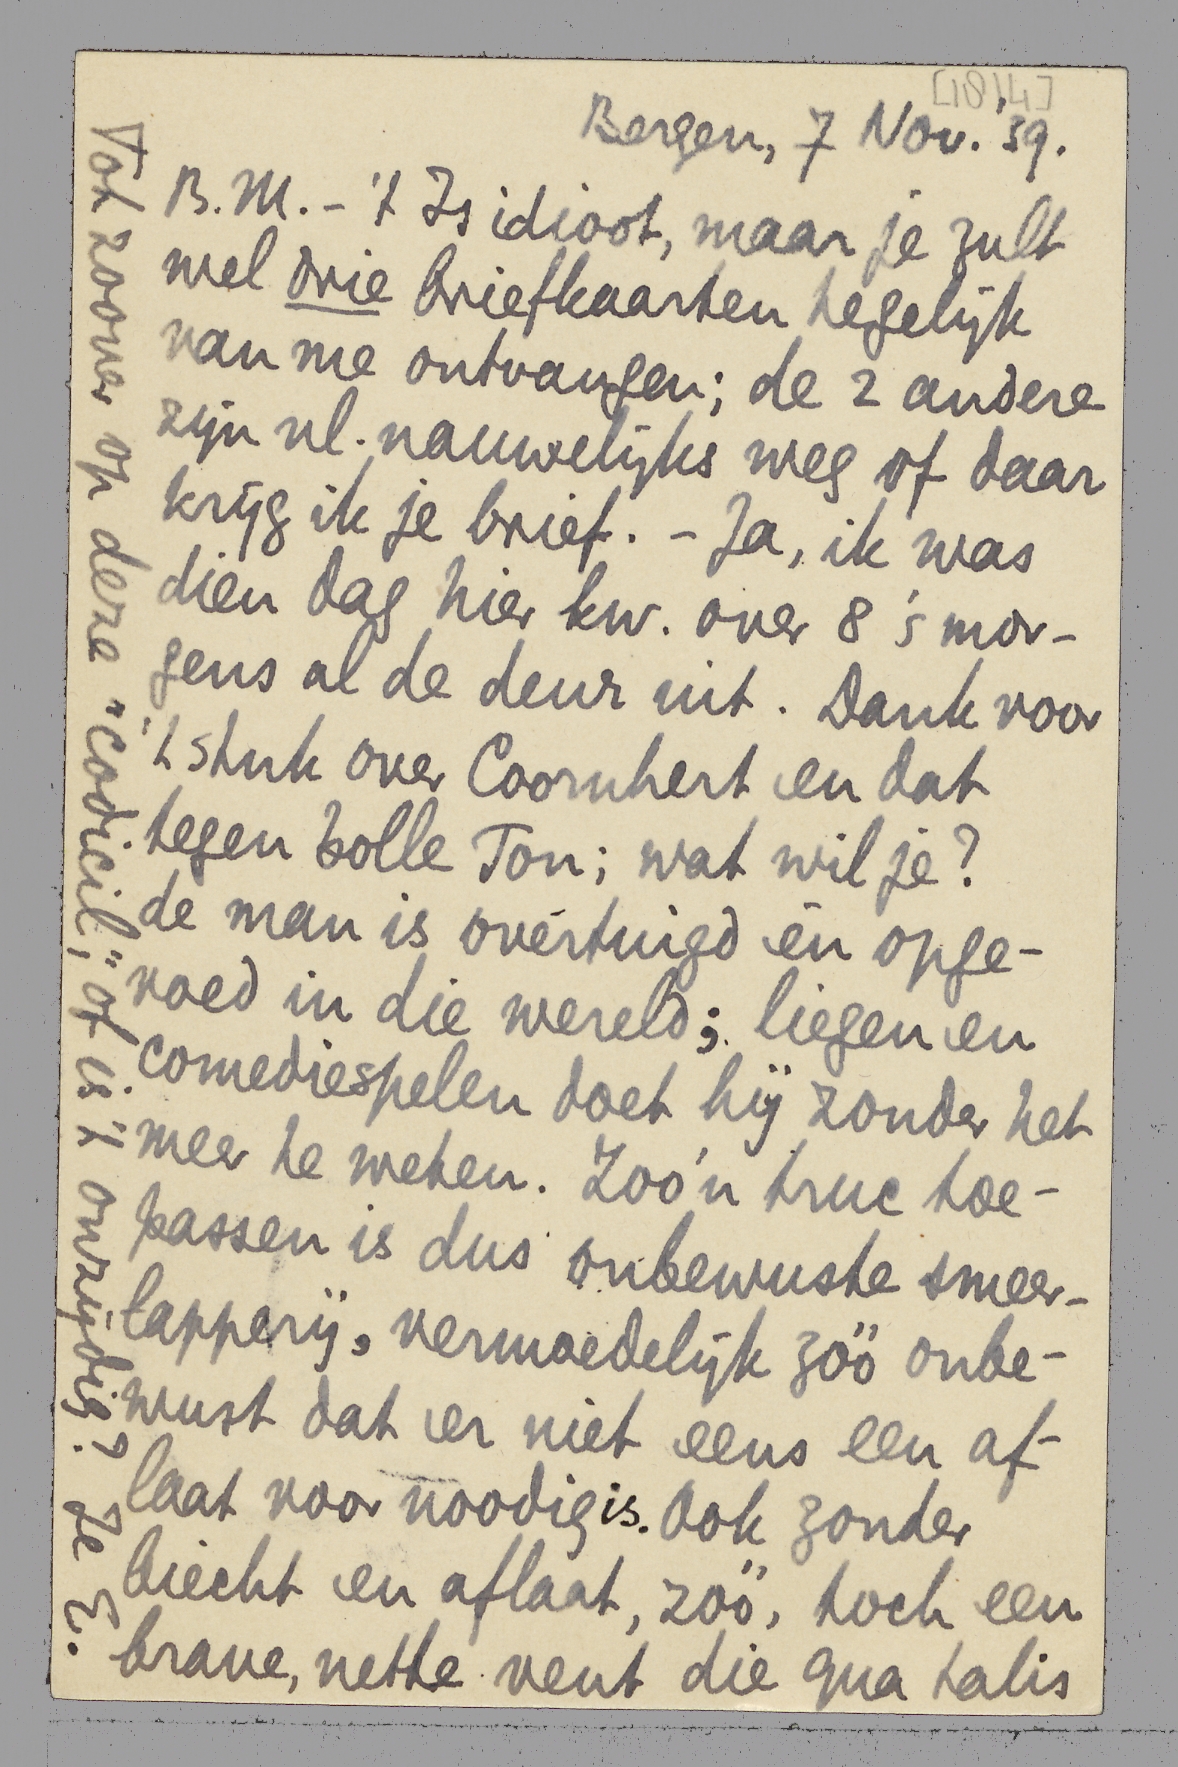 [1814]
Bergen, 7 Nov. '39.
B.M. - 't Is idioot, maar je zult
wel drie briefkaarten tegelijk
van me ontvangen; de 2 andere
zijn nl. nauwelijks weg of daar
krijg ik je brief. - Ja, ik was
dien dag hier kw. over 8 's mor-
gens al de deur uit. Dank voor
't stuk over Coornhert en dat
tegen bolle Ton; wat wil je?
de man is overtuigd én opge-
voed in die wereld; liegen en
comediespelen doet hij zonder het
meer te weten. Zoo'n truc toe-
passen is dus onbewuste smeer-
lapperij, vermoedelijk zóó onbe-
wust dat er niet eens een af-
laat voor noodig is. Ook zonder
biecht en aflaat, zóó, toch een
brave, nette vent die qua talis
Tot zoover op deze "codicil", of is 't onzijdig? Je E.